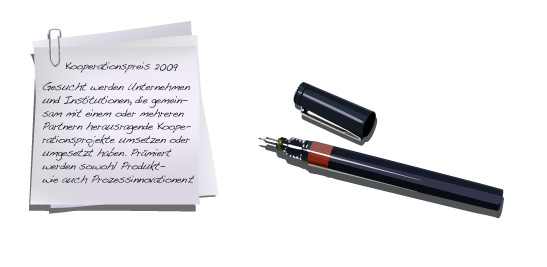 Kooperationspreis 2009
Gesucht werden Unternehmen
und Institutionen, die gemein-
sam mit einem oder mehreren
Partnern herausragende Koope-
rationsprojekte umsetzen oder
umgesetzt haben. Prämiert
werden sowohl Produkt-
wie auch Prozessinnovationent